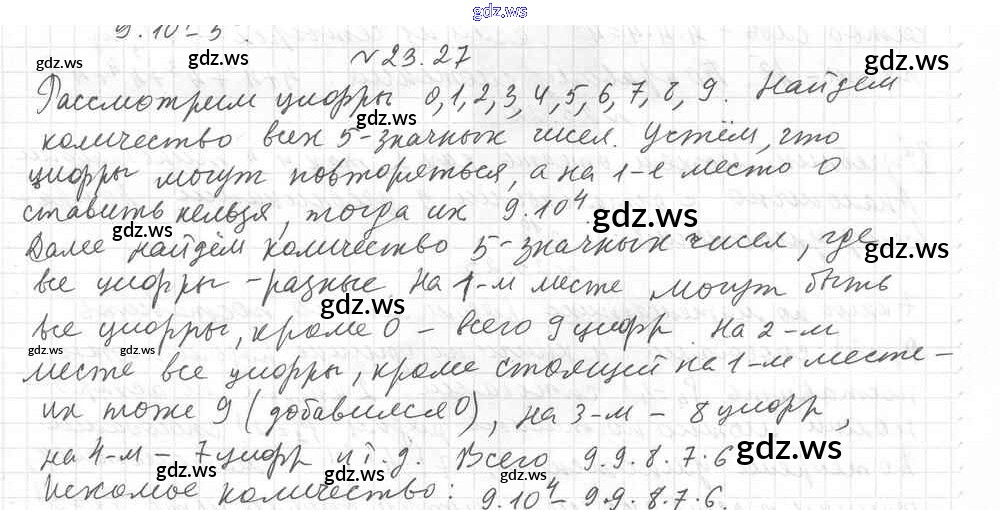 gdz.ws
9.10⁴-5
№23.27
gdz.ws
gdz.ws
Рассмотрим цифры 0,1,2,3,4,5,6,7,8,9. Найдем
gdz.ws
gdz.ws
количество всех 5-значных чисел. Устём, что
цифры могут повторяться, а на 1-е место 0
ставить нельзя, тогда их 9.10⁴.
gdz.ws
gdz.ws
Далее найдём количество 5-значных чисел, где
gdz.ws
gdz.ws
все цифры - разные на 1-м месте могут быть
gdz.ws
все цифры, кроме 0 - всего 9 цифр на 2-м
gdz.ws
gdz.ws
gdz.ws
месте все цифры, кроме стоящей на 1-м месте -
их тоже 9 (добавился 0), на 3-м - 8 цифр,
на 4-м - 7 цифр и т.д. Всего 9.9.8.7.6
gdz.ws
gdz.ws
gdz.ws
Искомое количество: 9.10⁴- 9.9.8.7.6.